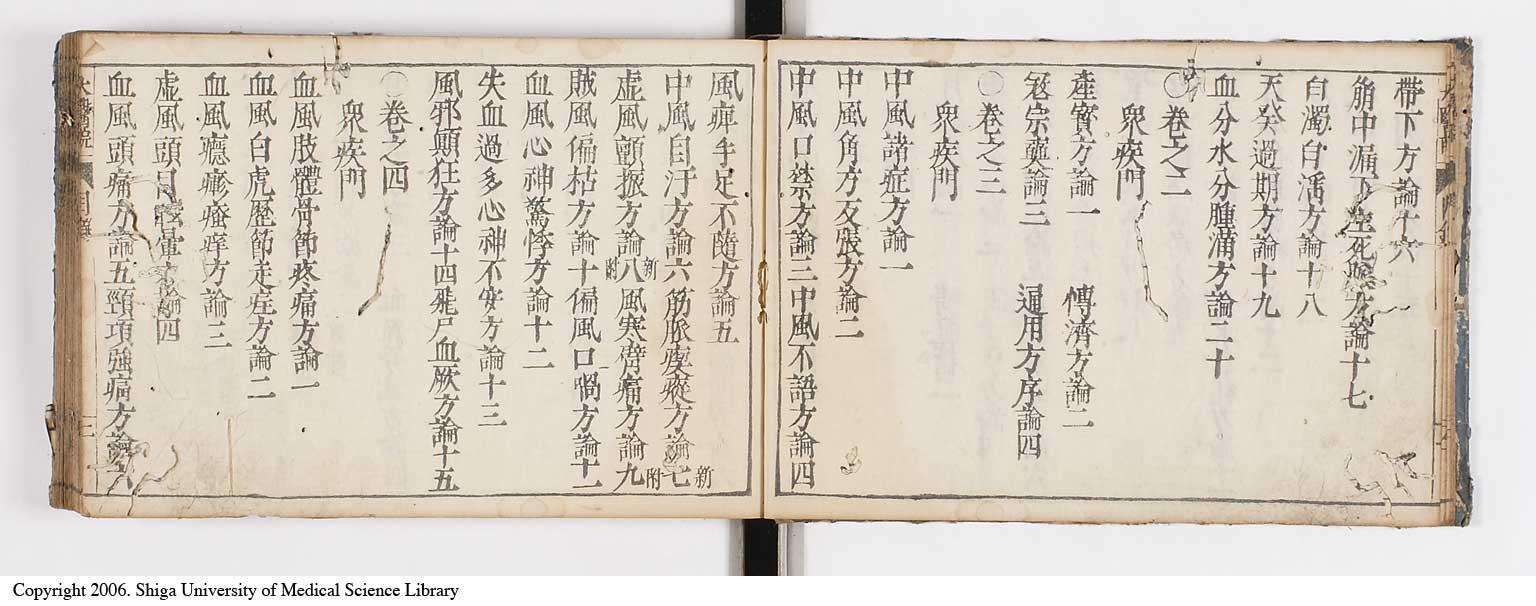 帶下方論十六
崩中漏下生死脉方論十七
白濁白淫方論十八
天癸過期方論十九
血分水分腫滿方論二十
〇卷之二
衆疾門
產寶方論一 博濟方論二
寇宗奭論三 通用方序論四
〇卷之三
衆疾門
中風諸症方論一
中風角弓反張方論二
中風口禁方論三中風不語方論四
風痺手足不隨方論五
中風自汗方論六筋脉瘈瘲方論七新附
虛風顫振方論八新附風寒臂痛方論九
賊風偏枯方論十偏風口喎方論十一
血風心神驚悸方論十二
失血過多心神不安方論十三
風邪顚狂方論十四飛尸血厥方論十五
〇卷之四
衆疾門
血風肢體骨節疼痛方論一
血風白虎歷節走疰方論二
血風癮疹瘙痒方論三
虛風頭目眩暈方論四
血風頭痛方論五頸項強痛方論六
三
Copyright 2006. Shiga University of Medical Science Library